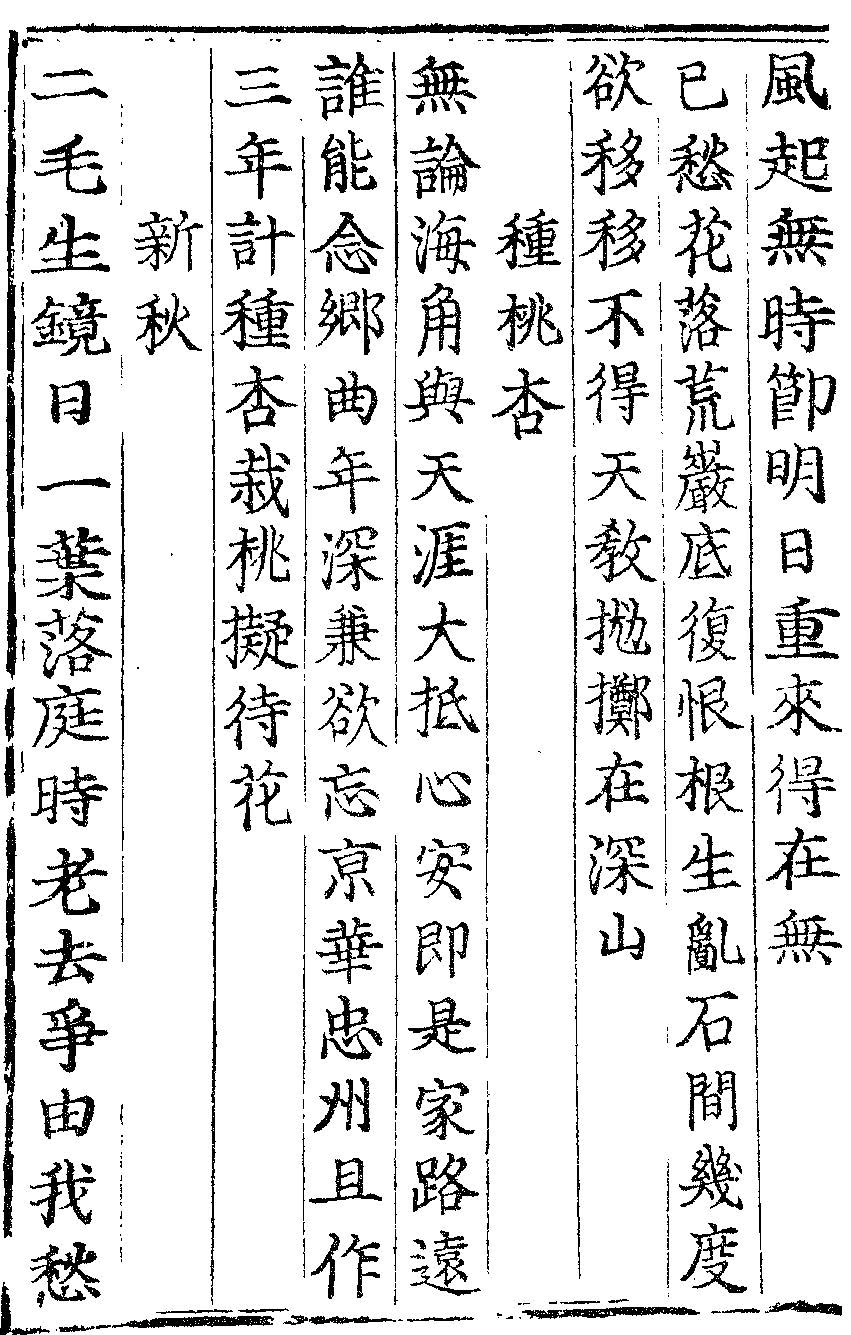 風起無時節明日重來得在無
已愁花落荒巖底復恨根生亂石間幾度
欲移移不得天教抛擲在深山
種桃杏
無論海角與天涯大抵心安即是家路遠
誰能念鄉曲年深兼欲忘京華忠州且作
三年計種杏栽桃擬待花
新秋
二毛生鏡日一葉落庭時老去爭由我愁